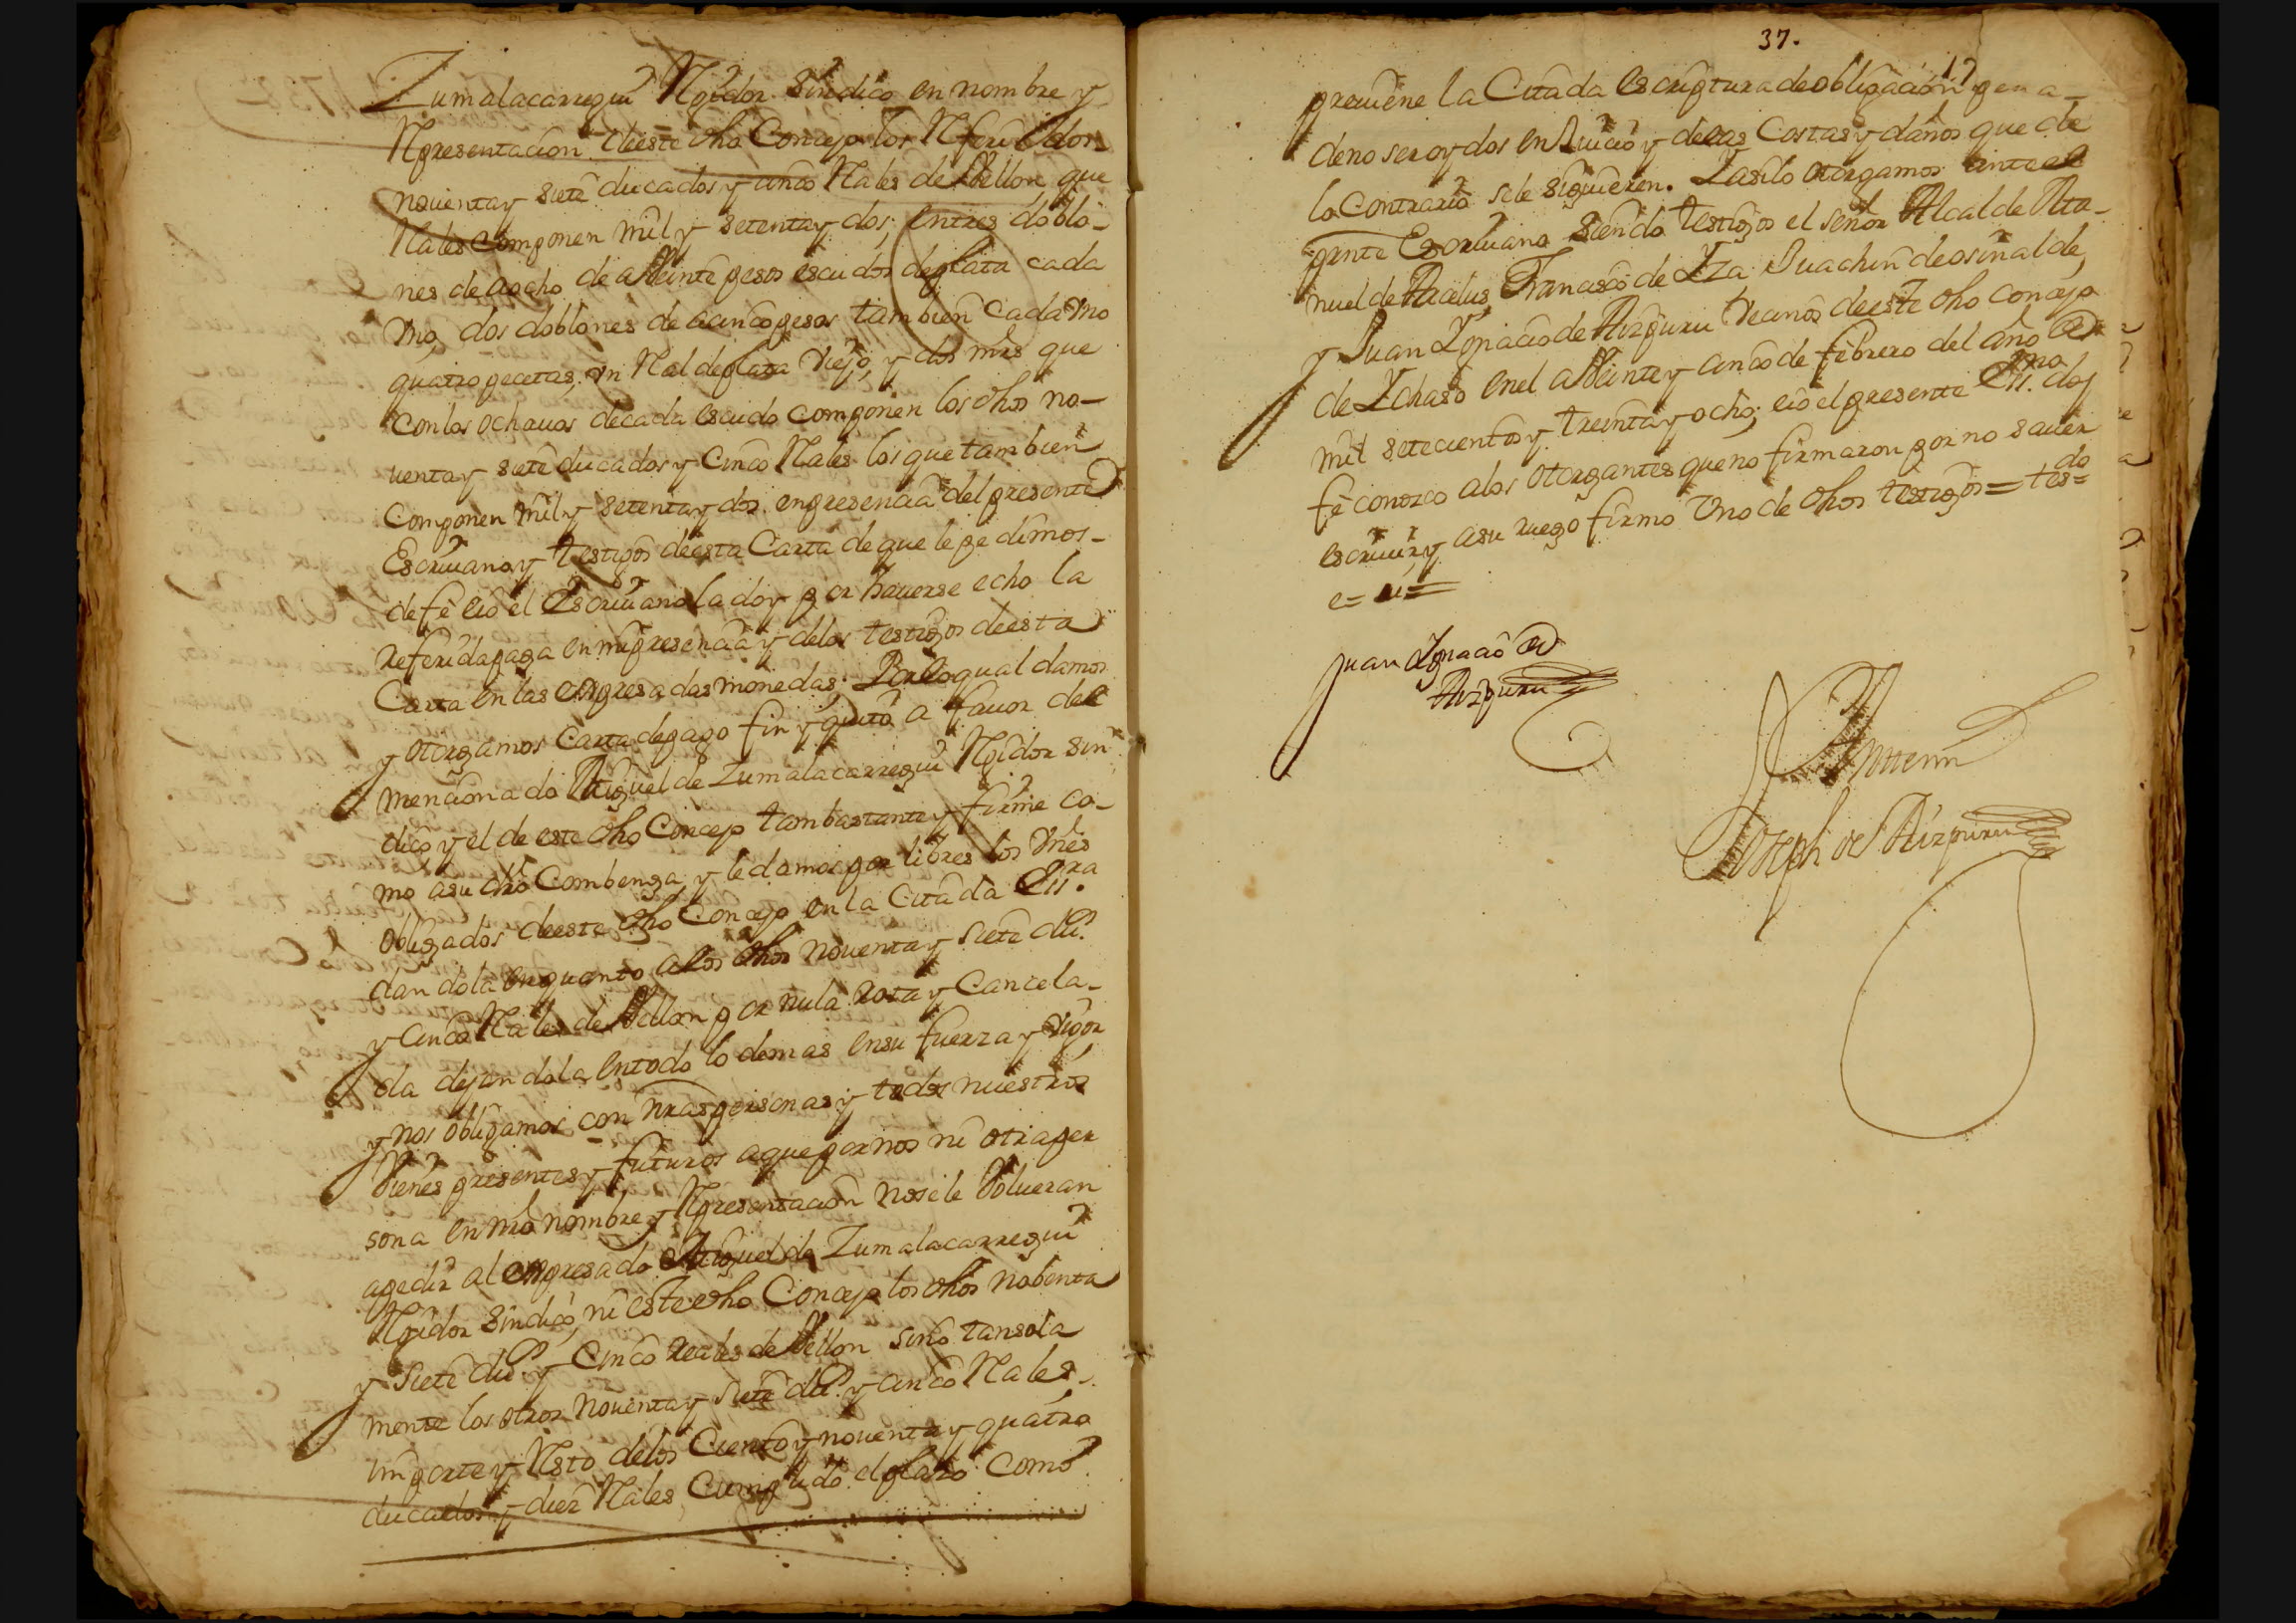 Zumalacarregui Rexidor Sindico en nombre y
Representacion deeste dho Concejo los Referidos
noventa y siete ducados y cinco Rales de Vellon que
Rales componen mil y setenta y dos; entres doblo-
nes de aocho de a Veinte pesos escudos de plata cada
vno, dos doblones de acinco pesos tambien cada vno
quatro pecetas, vn Ral de plata viejo, y dos mrs que
con los ochavos de cada escudo componen los dhos no-
uenta y siete ducados y Cinco Rales los que tambien
Componen mil y setenta y dos. en presencia del presente
Escriuano y testigos deesta Carta de que le pedimos
de fe eio el Escriuano la doy por hauerse echo la
referida paga en mi presencia y delos testigos deesta
Carta en las expresadas monedas. Por lo qual damos
y otorgamos Carta de pago fin y quito a fauor del
mencionado Miguel de Zumalacarregui Rexidor Sin-
dico y el de este dho Concejo tam bastante y firme co-
mo asu dro Combenga, y le damos por libres los Vnes
obligados deeste dho Concejo en la Citada Essra.
dandola en quanto alos dhos noventa y siete dus.
y cinco Rales de Vellon por nula rota y Cancela-
da dejandola en todo lo demas en su fuerza y vigor
y nos obligamos con nras personas y todos nuestros
Vienes presentes y futuros a que por nos ni otra per
sona en nro nombre y Representacion nosele Volueran
apedir al expresado Miguel de Zumalacarregui
Rexidor Sindico, ni este dho Concejo los dhos nobenta
y siete dus. y Cinco reales de Vellon sino tansola
mente los otros noventa y siete dus. y cinco Rales.
importe y Resto delos Ciento y noventa y quatro
ducados y diez Rales Cumplido el plazo como
37.
17
preuiene la Citada escriptura de obligacion pena
de no ser oydos en Juicio y delas Costas y daños que de
lo Contrario sele siguieren. Y asi lo otorgamos ante el
prnte Escriuano siendo testigos el señor Alcalde Ma-
nuel de Francisco de Yza Juachin de osinalde,
y Juan Ygnacio de Aizpuru Vecinos deeste dho concejo
de Ychaso en el a Veinte y cinco de febrero del año de
mil setecientos y treinta y ocho; eio el presente Essno. doy
fe conozco alos otorgantes que no firmaron por no sauer
escriuir, y asu ruego firmo Vno de dhos testigos = tesdo
e= ui=
Juan Ygnacio de
Aizpuru
Antemi
Joseph de Aizpuru